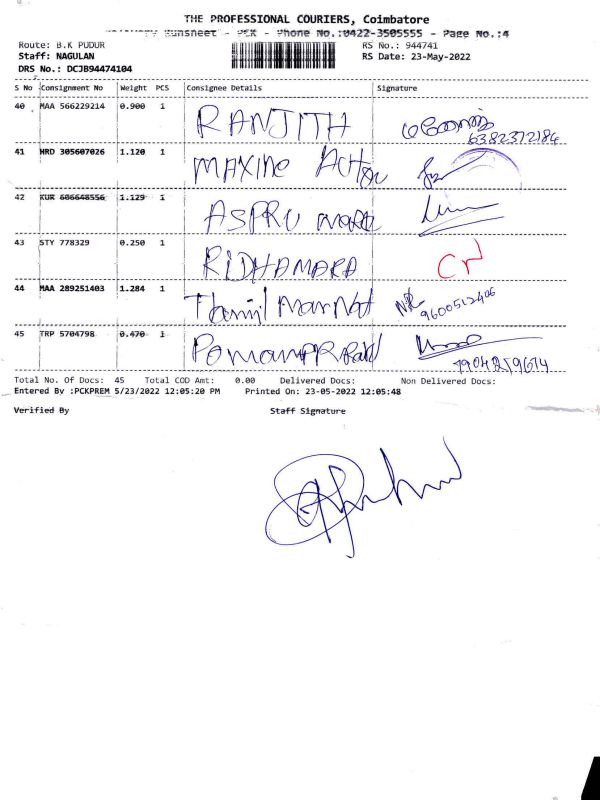 THE PROFESSIONAL COURIERS, Coimbatore
Runsheet - PCK - Phone No.:0422-3505555 - Page No.:4
Route: B.K PUDUR RS No.: 944741
Staff: NAGULAN RS Date: 23-May-2022
DRS No.: DCJB94474104
S No Consignment No Weight PCS Consignee Details Signature
40 MAA 566229214 0.900 1 RANJITH
6382372184
41 MRD 305607026 1.120 1 MAXINE
42 KUR 606648556 1.129 1 ASPRU
43 STY 778329 0.250 1 RIDHAMARA
44 MAA 289251403 1.284 1 Tamil
9600512406
45 TRP 5704798 0.470 1
7904259674
Total No. Of Docs: 45 Total COD Amt: 0.00 Delivered Docs: Non Delivered Docs:
Entered By :PCKPREM 5/23/2022 12:05:20 PM Printed On: 23-05-2022 12:05:48
Verified By Staff Signature